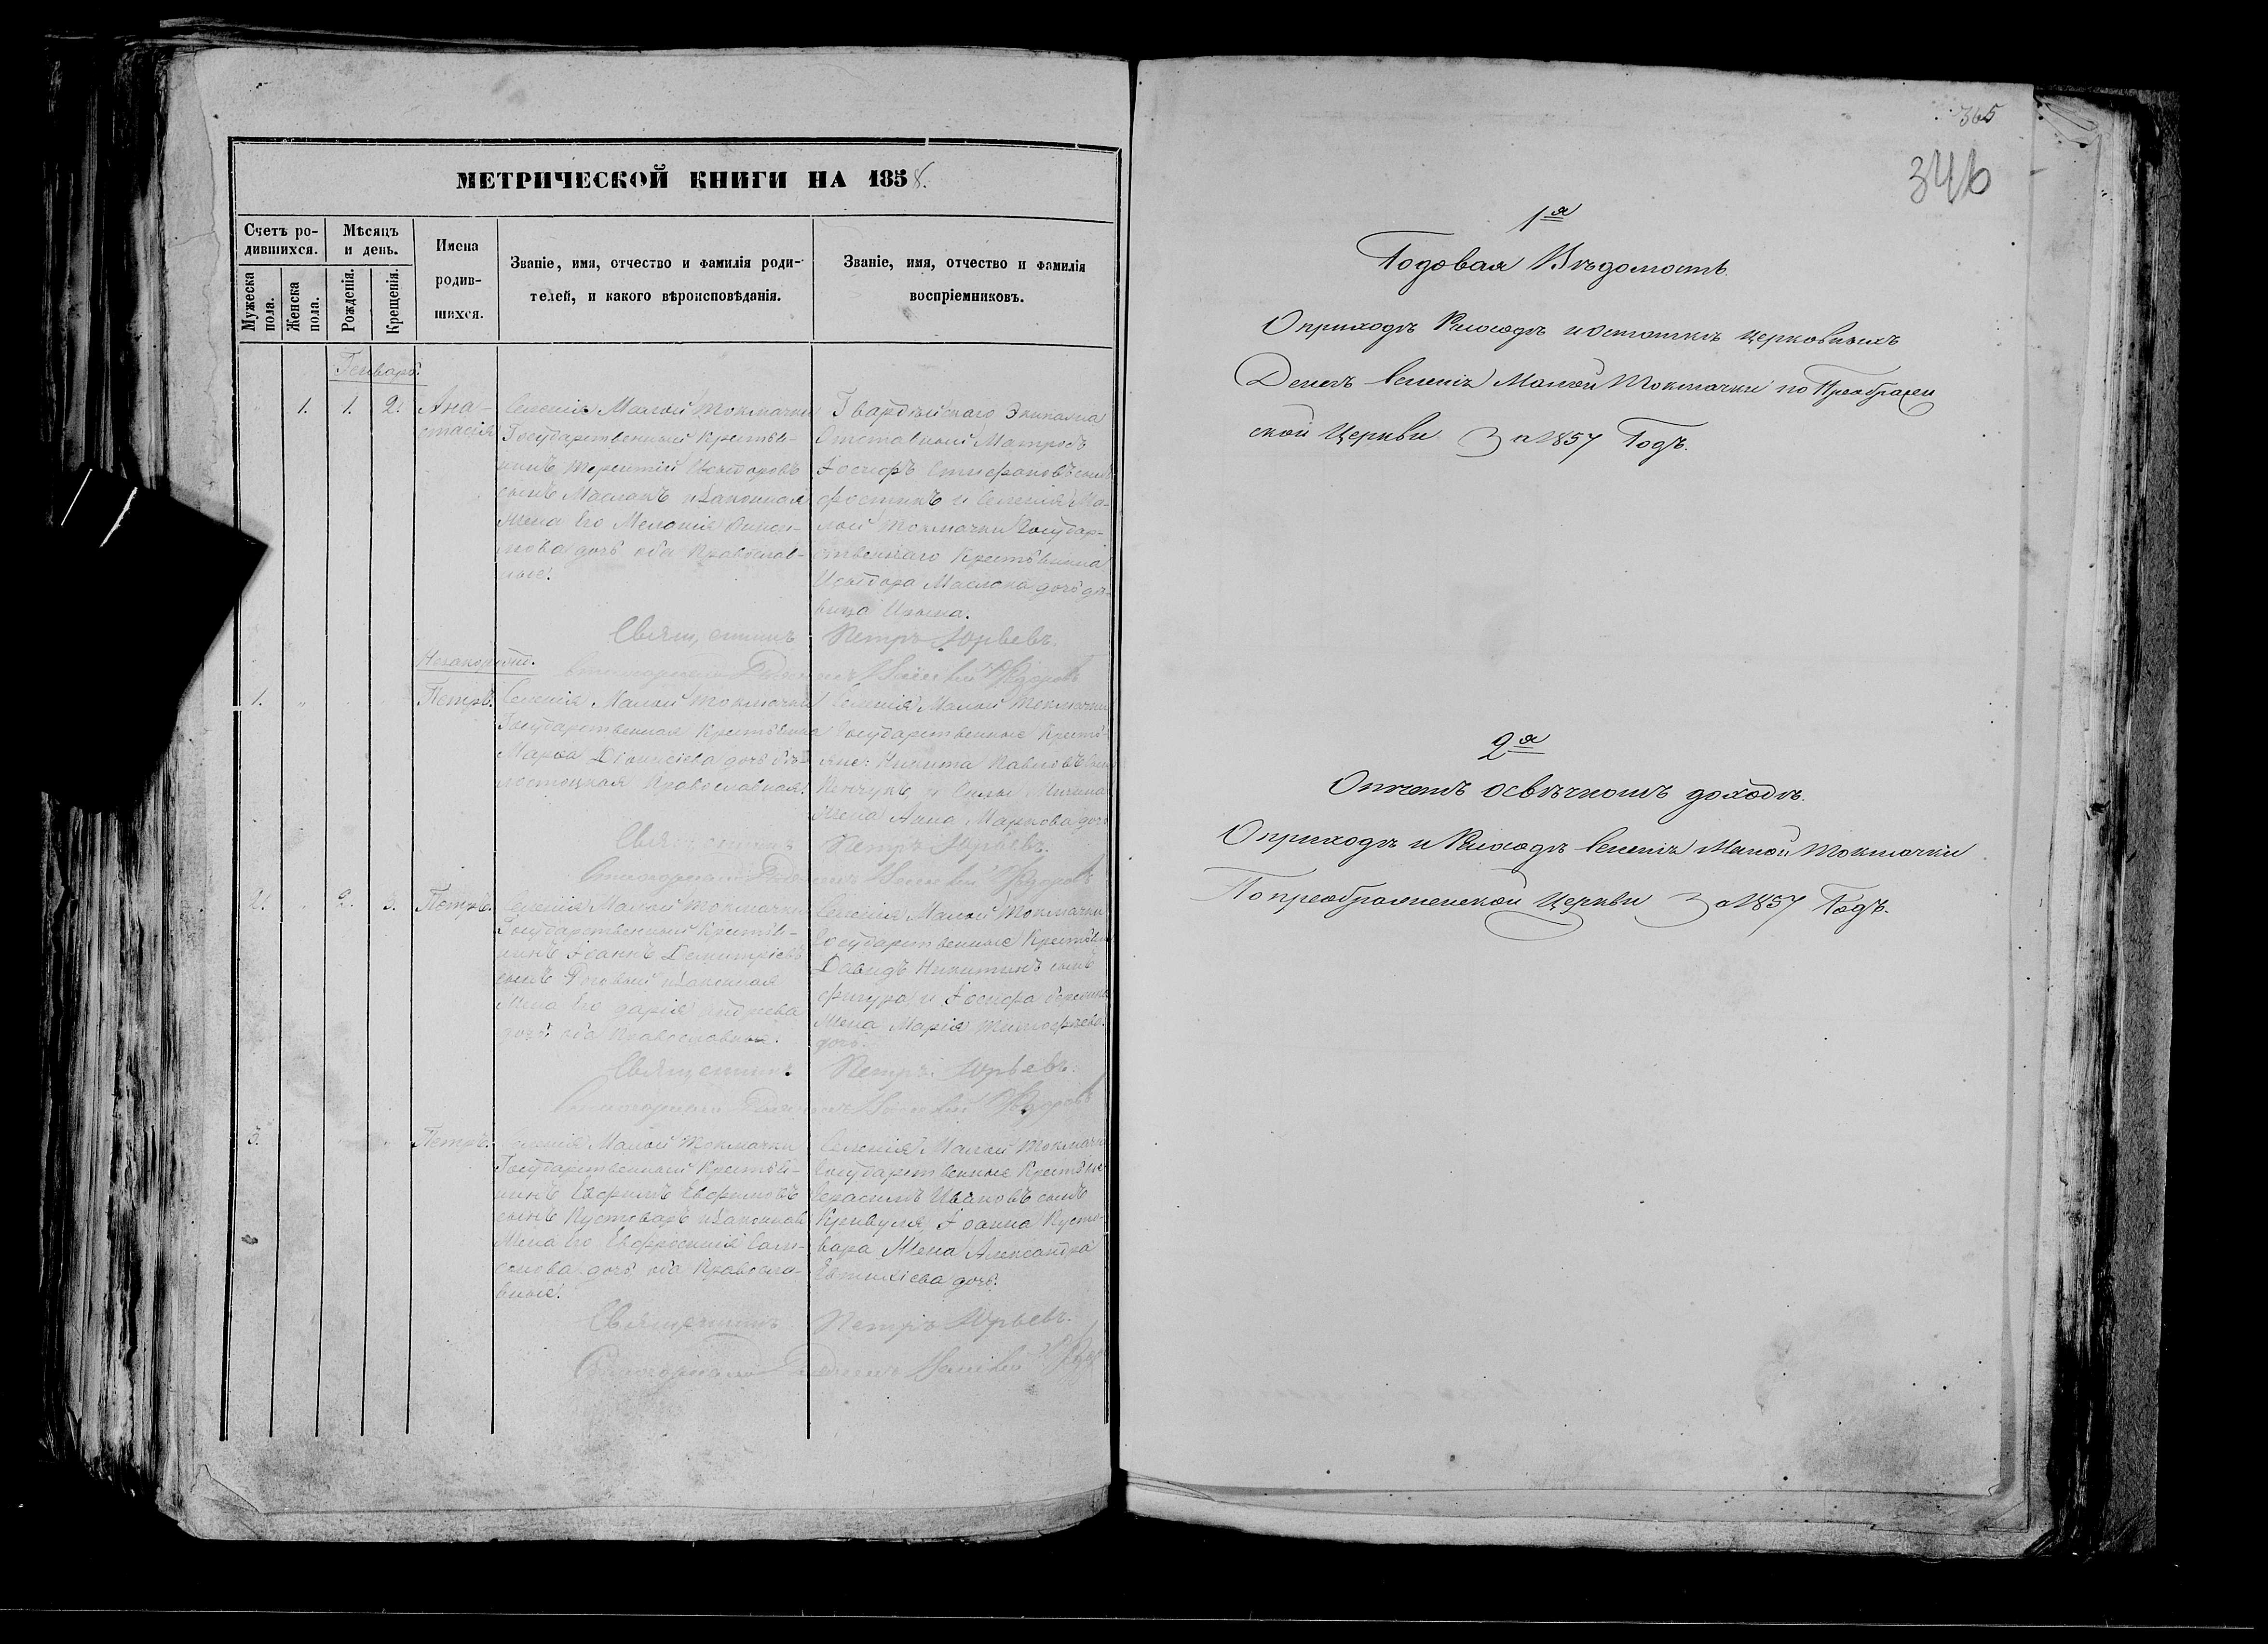 МЕТРИЧЕСКОЙ КНИГИ НА 1858.
Счетъ ро-
дившихся.
Мѣсяцъ
и день.
Мужеска
пола.
Женска
пола.
Рожденія.
Крещенія.
Имена
родив-
шихся.
Званіе, имя, отчество и фамилія роди-
телей, и какого вѣроисповѣданія.
Званіе, имя, отчество и фамилія
воспріемниковъ.
Генварь.
1. 1. 2.
Ана-
стасія
Селенія Малой Токмачки
Государственный Крестья-
нинъ Терентій Исидоровъ
сынъ Масланъ и законная
жена его Меланія
дочь оба Православ-
ные.
Гвардейскаго Экипажа
Отставный Матросъ
Іосифъ Стефановъ сынъ
и Селенія Ма-
лой Токмачки Государ-
ственнаго Крестьянина
Исидора Маслана дочь дѣ-
вица Ирина.
Священникъ Петръ Юрьевъ.
Незаконорожд.
1. Петръ.
Селенія Малой Токмачки
Государственная Крестьянка
Марѳа Діонисіева дочь
Православная.
Селенія Малой Токмачки
Государственные Крестья-
яне: Никита Павловъ сынъ
и
жена Анна Маркова дочь
Священникъ Петръ Юрьевъ.
2. 2. 3. Петръ.
Селенія Малой Токмачки
Государственный Крестья-
нинъ Іоаннъ Димитріевъ
сынъ Роговый и законная
жена его Дарія Андреева
дочь оба Православные.
Селенія Малой Токмачки
Государственные Крестьяне
Давидъ Никитинъ сынъ
Фигура и Іосифа
жена Марія Тимофѣева
дочь.
Священникъ Петръ Юрьевъ.
3. Петръ.
Селенія Малой Токмачки
Государственный Крестья-
нинъ Евфимъ Евфимовъ
сынъ Пустоваръ и законная
жена его Евфросинія Сам-
сонова дочь оба Правосла-
вные.
Селенія Малой Токмачки
Государственные Крестьяне
Герасимъ Ивановъ сынъ
Кривуля Іоанна Пусто-
вара жена Александра
Евтихіева дочь.
Священникъ Петръ Юрьевъ.
365
346
1я
Годовая Вѣдомость
О приходѣ Расходѣ и остаткѣ церковныхъ
Денегъ Селенія Малой Токмачки по Преображен
ской Церкви За 1857 Годъ.
2я
Отчетъ о свѣчномъ доходѣ.
О приходѣ и Расходѣ Селенія Малой Токмачки
По преображенской Церкви За 1857 Годъ.